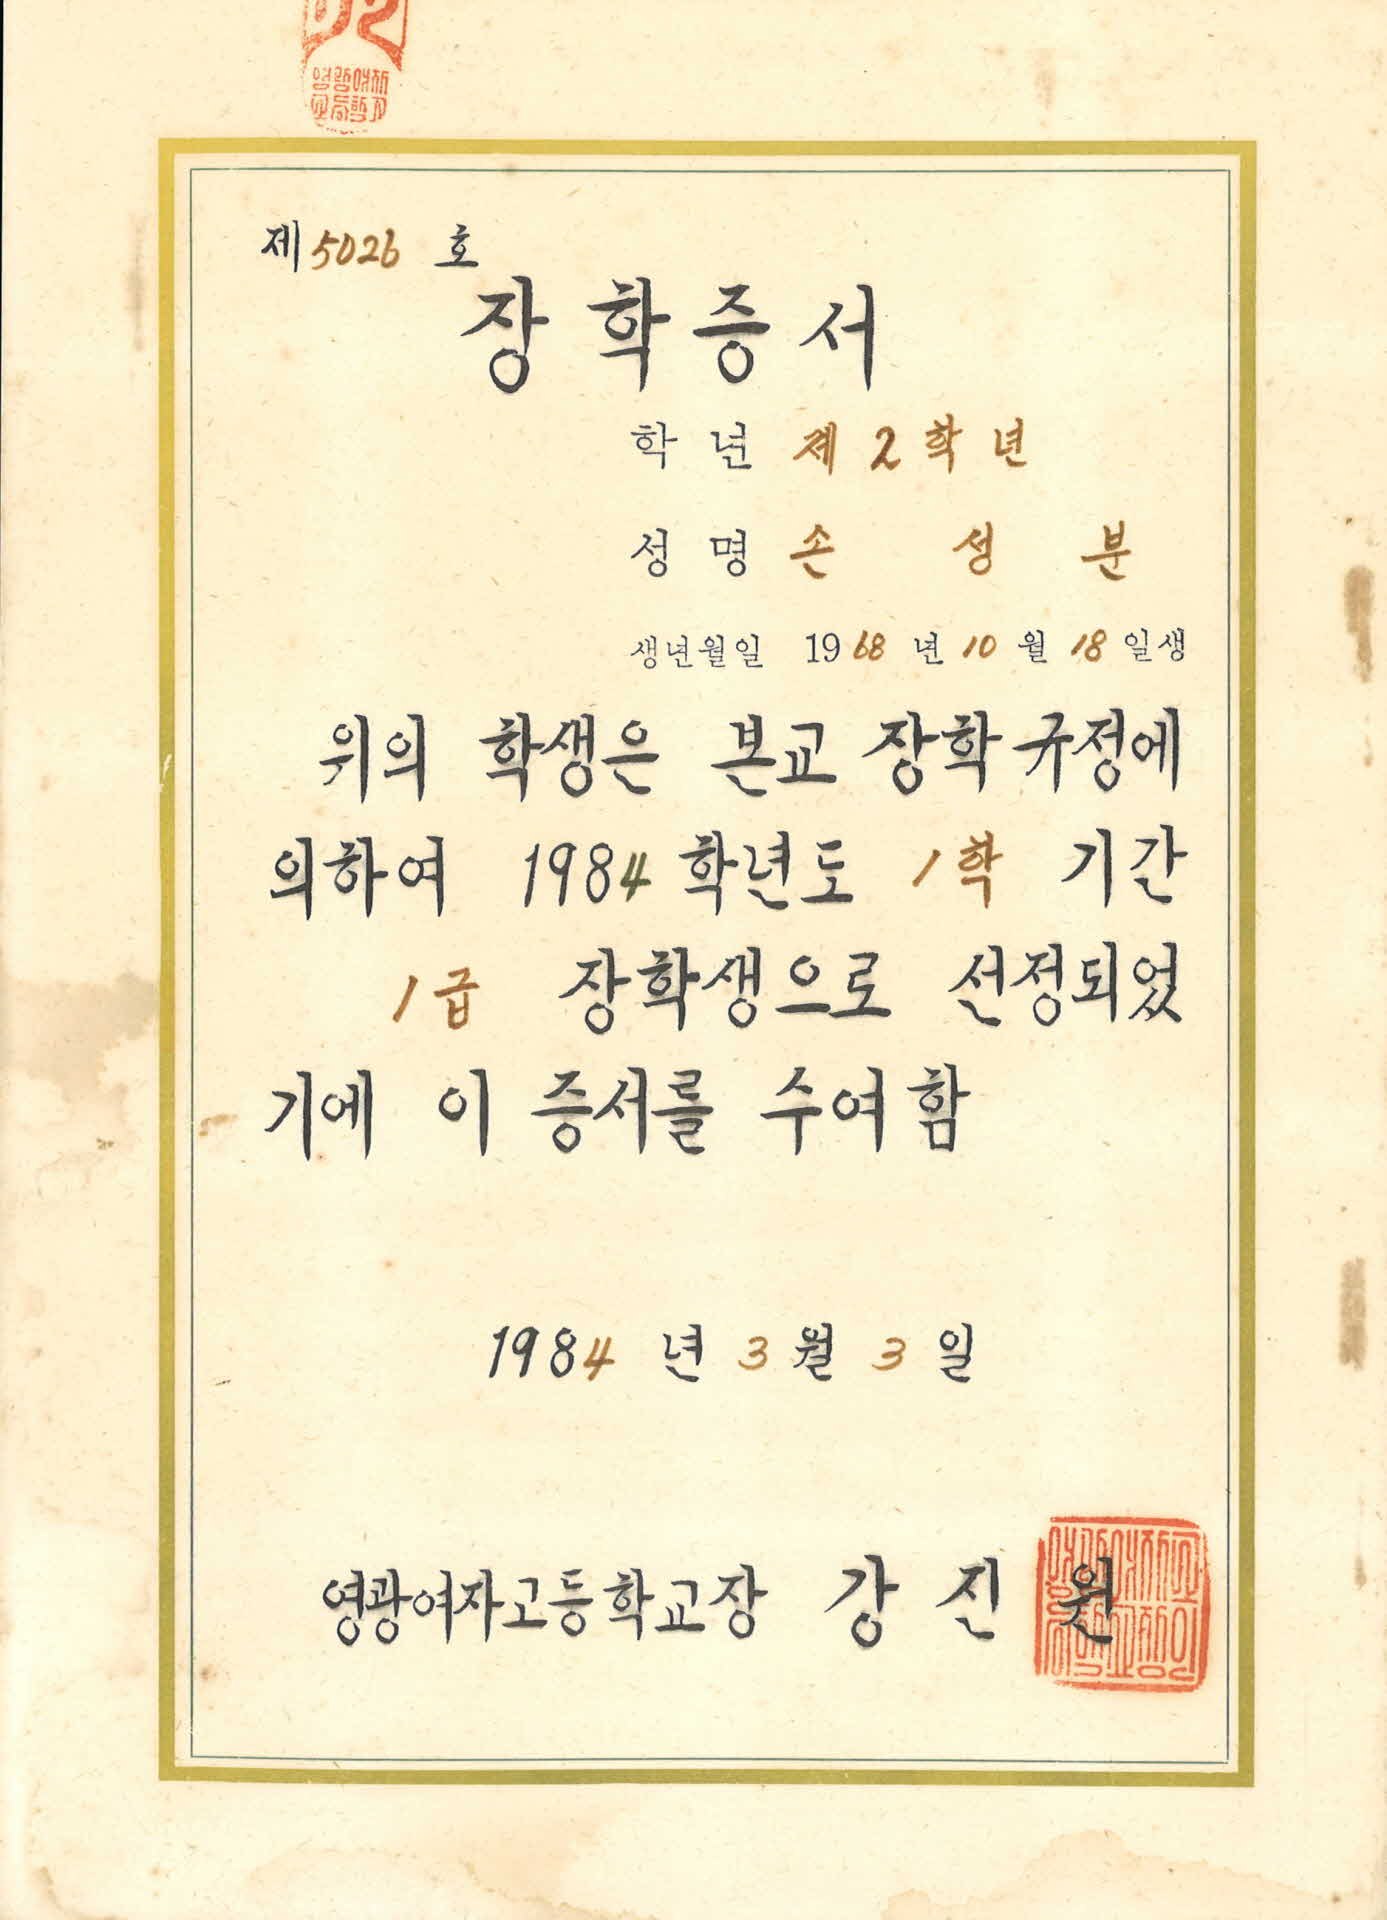 제 5026 호
장학증서
학년 제2학년
성명 손 성 분
생년월일 1968년 10월 18일생
위의 학생은 본교 장학규정에
의하여 1984학년도 1학 기간
1급 장학생으로 선정되었
기에 이 증서를 수여함
1984년 3월 3일
영광여자고등학교장 강 진 원